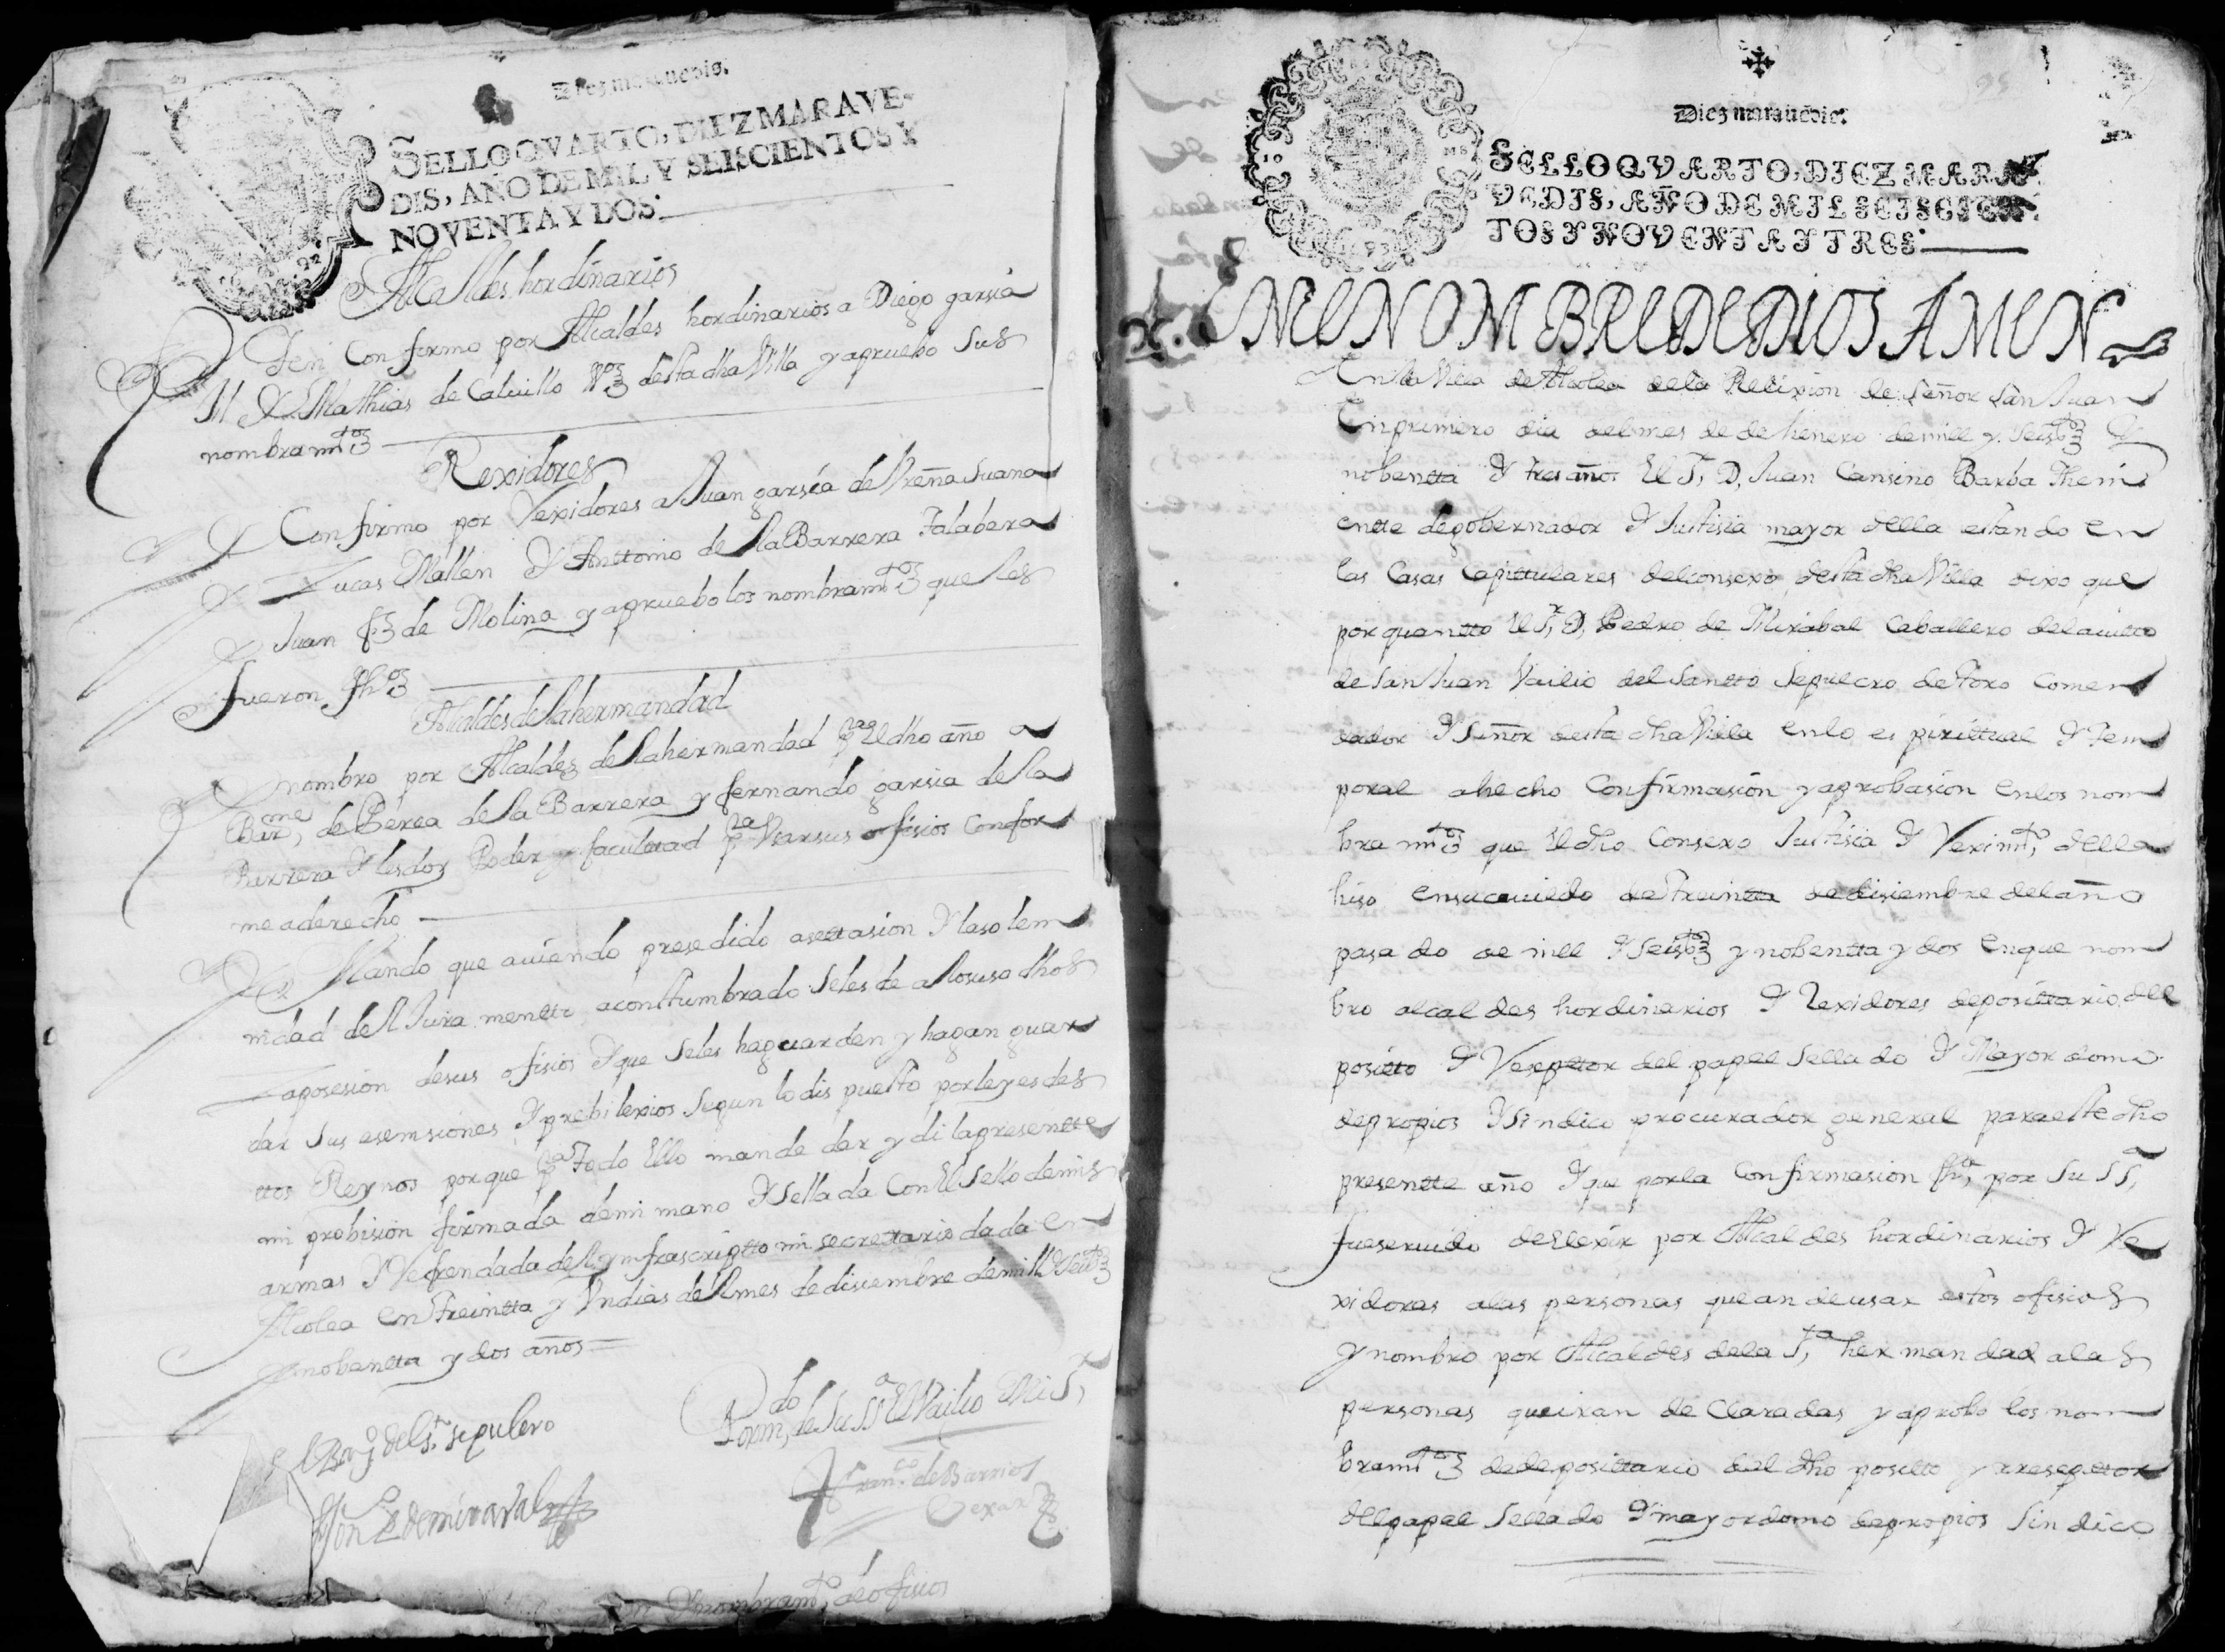 Diez marauedis.
SELLO QVARTO, DIEZ MARAVE-
DIS, AÑO DE MIL Y SEISCIENTOS Y
NOVENTA Y DOS.
Alcaldes hordinarios
Confirmo por Alcaldes hordinarios a Diego garsia
Mathias de Caluillo Vos desta dha Villa y apruebo sus
nombramtos
Rexidores
Confirmo por Rexidores a Juan garsía de Vreña Juana
Lucas Mallen Y Anttonio de la Barrera Talabera
Juan de Molina y apruebo los nombramtos que les
fueron fhos
Alcaldes de la hermandad
nombro por Alcaldes de la hermandad pa el dho año a
Barme, de Perea de la Barrera y fernando garsia de la
Barrera Y les doy Poder y facultad pa Vsar sus ofisios confor
me a derecho
Mando que auiendo presedido asettasion Y la solem
nidad del Juramentto acostumbrado Seles de a los suso dhos
la posesion de sus ofisios Y que Seles haguarden y hagan guar
dar Sus esemsiones Y prebilexios Segun lo dis puesto por leyes des
ttos Reynos porque pa todo Ello mande dar y di la presentte
mi probision firmada de mi mano Y Sellada Con El Sello de mis
armas Y Refrendada del ynfrascriptto mi secrettario dada en
Alcolea en Treintta y Vn dias del mes de disiembre de mill Y Seistos
y nobentta y dos años
El Bayo del St. sepulcro
Por mdo, de Su SSa El Vailio Mi Sr,
Franco. de Barrios
Y nombramto, de ofisios
Diez marauedis.
SELLO QVARTO, DIEZ MARA
VEDIS, AÑO DE MIL SEISCIEN
TOS Y NOVENTA Y TRES.
EN EL NOMBRE DE DIOS AMEN
En la Villa de Alcolea de la Relixion de Señor San Juan
En primero dia del mes de de henero de mill y Seistos Y
nobentta Y tres años El Sr, D, Juan Cansino Barba Theni
entte de gobernador Y Justisia mayor della estando en
las Casas Capittulares del consexo desta dha Villa dixo que
por quantto El Sr, D, Pedro de Mirabal Caballero del auitto
de San Juan Vailio del Santto Sepulcro de Toro Comen
dador Y Señor desta dha Villa en lo es pirittual Y Tem
poral a hecho Confirmasion y aprobasion en los nom
bra mtos que El dho Consexo Justisia Y Reximto, della
hiso en su cauildo de Treintta de disiembre del año
pasa do de mill Y Seistos y nobentta y dos en que nom
bro alcal des hordinarios Y Rexidores deposittario del
positto Y Reseptor del papel Sella do Y Mayor domo
de propios Y Sindico procurador general para este dho
presentte año Y que por la Confirmasion fha, por Su SSa,
fue seruido de Elexir por Alcaldes hordinarios Y Re
xidores a las personas que an de usar estos ofisios
y nombro por Alcaldes de la Sta, hermandad a las
personas que iran de Claradas y aprobo los nom
bramtos de deposittario del dho positto y rreseptor
del papel Sellado Y mayordomo de propios Sindico